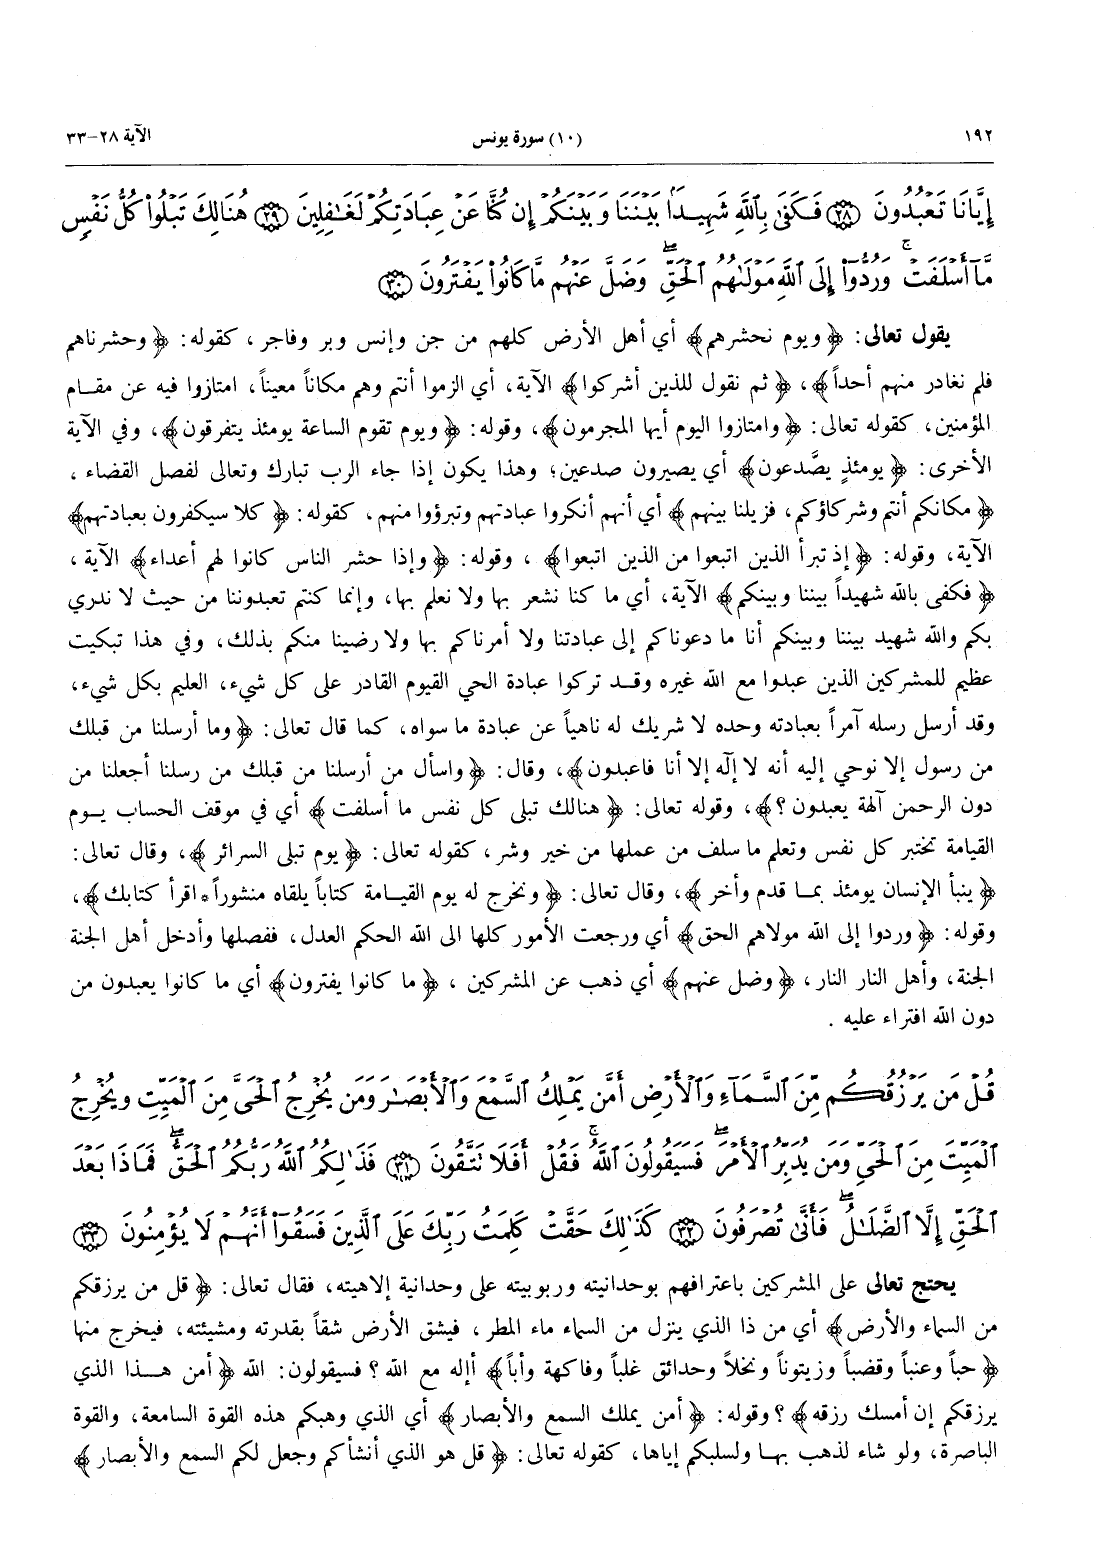 ١٩٢ (١٠) سورة يونس الآية ٢٨-٣٣
إِيَّانَا تَعْبُدُونَ ﴿٢٨﴾ فَكَفَىٰ بِٱللَّهِ شَهِيدًۢا بَيْنَنَا وَبَيْنَكُمْ إِن كُنَّا عَنْ عِبَادَتِكُمْ لَغَٰفِلِينَ ﴿٢٩﴾ هُنَالِكَ تَبْلُوا۟ كُلُّ نَفْسٍ
مَّآ أَسْلَفَتْ ۚ وَرُدُّوٓا۟ إِلَى ٱللَّهِ مَوْلَىٰهُمُ ٱلْحَقِّ ۖ وَضَلَّ عَنْهُم مَّا كَانُوا۟ يَفْتَرُونَ ﴿٣٠﴾
يقول تعالى: ﴿ويوم نحشرهم﴾ أي أهل الأرض كلهم من جن وإنس وبر وفاجر، كقوله: ﴿وحشرناهم
فلم نغادر منهم أحداً﴾، ﴿ثم نقول للذين أشركوا﴾ الآية، أي الزموا أنتم وهم مكاناً معيناً، امتازوا فيه عن مقام
المؤمنين، كقوله تعالى: ﴿وامتازوا اليوم أيها المجرمون﴾، وقوله: ﴿ويوم تقوم الساعة يومئذ يتفرقون﴾، وفي الآية
الأخرى: ﴿يومئذٍ يصَّدعون﴾ أي يصيرون صدعين؛ وهذا يكون إذا جاء الرب تبارك وتعالى لفصل القضاء،
﴿مكانكم أنتم وشركاؤكم، فزيلنا بينهم﴾ أي أنهم أنكروا عبادتهم وتبرؤوا منهم، كقوله: ﴿كلا سيكفرون بعبادتهم﴾
الآية، وقوله: ﴿إذ تبرأ الذين اتبعوا من الذين اتبعوا﴾، وقوله: ﴿وإذا حشر الناس كانوا لهم أعداء﴾ الآية،
﴿فكفى بالله شهيداً بيننا وبينكم﴾ الآية، أي ما كنا نشعر بها ولا نعلم بها، وإنما كنتم تعبدوننا من حيث لا ندري
بكم والله شهيد بيننا وبينكم أنا ما دعوناكم إلى عبادتنا ولا أمرناكم بها ولا رضينا منكم بذلك، وفي هذا تبكيت
عظيم للمشركين الذين عبدوا مع الله غيره وقد تركوا عبادة الحي القيوم القادر على كل شيء، العليم بكل شيء،
وقد أرسل رسله آمراً بعبادته وحده لا شريك له ناهياً عن عبادة ما سواه، كما قال تعالى: ﴿وما أرسلنا من قبلك
من رسول إلا نوحي إليه أنه لا إلٰه إلا أنا فاعبدون﴾، وقال: ﴿واسأل من أرسلنا من قبلك من رسلنا أجعلنا من
دون الرحمن آلهة يعبدون؟﴾، وقوله تعالى: ﴿هنالك تبلى كل نفس ما أسلفت﴾ أي في موقف الحساب يوم
القيامة تختبر كل نفس وتعلم ما سلف من عملها من خير وشر، كقوله تعالى: ﴿يوم تبلى السرائر﴾، وقال تعالى:
﴿ينبأ الإنسان يومئذ بما قدم وأخر﴾، وقال تعالى: ﴿ونخرج له يوم القيامة كتاباً يلقاه منشوراً * اقرأ كتابك﴾،
وقوله: ﴿وردوا إلى الله مولاهم الحق﴾ أي ورجعت الأمور كلها الى الله الحكم العدل، ففصلها وأدخل أهل الجنة
الجنة، وأهل النار النار، ﴿وضل عنهم﴾ أي ذهب عن المشركين، ﴿ما كانوا يفترون﴾ أي ما كانوا يعبدون من
دون الله افتراء عليه.
قُلْ مَن يَرْزُقُكُم مِّنَ ٱلسَّمَآءِ وَٱلْأَرْضِ أَمَّن يَمْلِكُ ٱلسَّمْعَ وَٱلْأَبْصَٰرَ وَمَن يُخْرِجُ ٱلْحَىَّ مِنَ ٱلْمَيِّتِ وَيُخْرِجُ
ٱلْمَيِّتَ مِنَ ٱلْحَىِّ وَمَن يُدَبِّرُ ٱلْأَمْرَ ۖ فَسَيَقُولُونَ ٱللَّهُ ۚ فَقُلْ أَفَلَا تَتَّقُونَ ﴿٣١﴾ فَذَٰلِكُمُ ٱللَّهُ رَبُّكُمُ ٱلْحَقُّ ۖ فَمَاذَا بَعْدَ
ٱلْحَقِّ إِلَّا ٱلضَّلَٰلُ ۖ فَأَنَّىٰ تُصْرَفُونَ ﴿٣٢﴾ كَذَٰلِكَ حَقَّتْ كَلِمَتُ رَبِّكَ عَلَى ٱلَّذِينَ فَسَقُوٓا۟ أَنَّهُمْ لَا يُؤْمِنُونَ ﴿٣٣﴾
يحتج تعالى على المشركين باعترافهم بوحدانيته وربوبيته على وحدانية إلاهيته، فقال تعالى: ﴿قل من يرزقكم
من السماء والأرض﴾ أي من ذا الذي ينزل من السماء ماء المطر، فيشق الأرض شقاً بقدرته ومشيئته، فيخرج منها
﴿حباً وعنباً وقضباً وزيتوناً ونخلاً وحدائق غلباً وفاكهة وأباً﴾ أإله مع الله؟ فسيقولون: الله ﴿أمن هذا الذي
يرزقكم إن أمسك رزقه﴾؟ وقوله: ﴿أمن يملك السمع والأبصار﴾ أي الذي وهبكم هذه القوة السامعة، والقوة
الباصرة، ولو شاء لذهب بها ولسلبكم إياها، كقوله تعالى: ﴿قل هو الذي أنشأكم وجعل لكم السمع والأبصار﴾